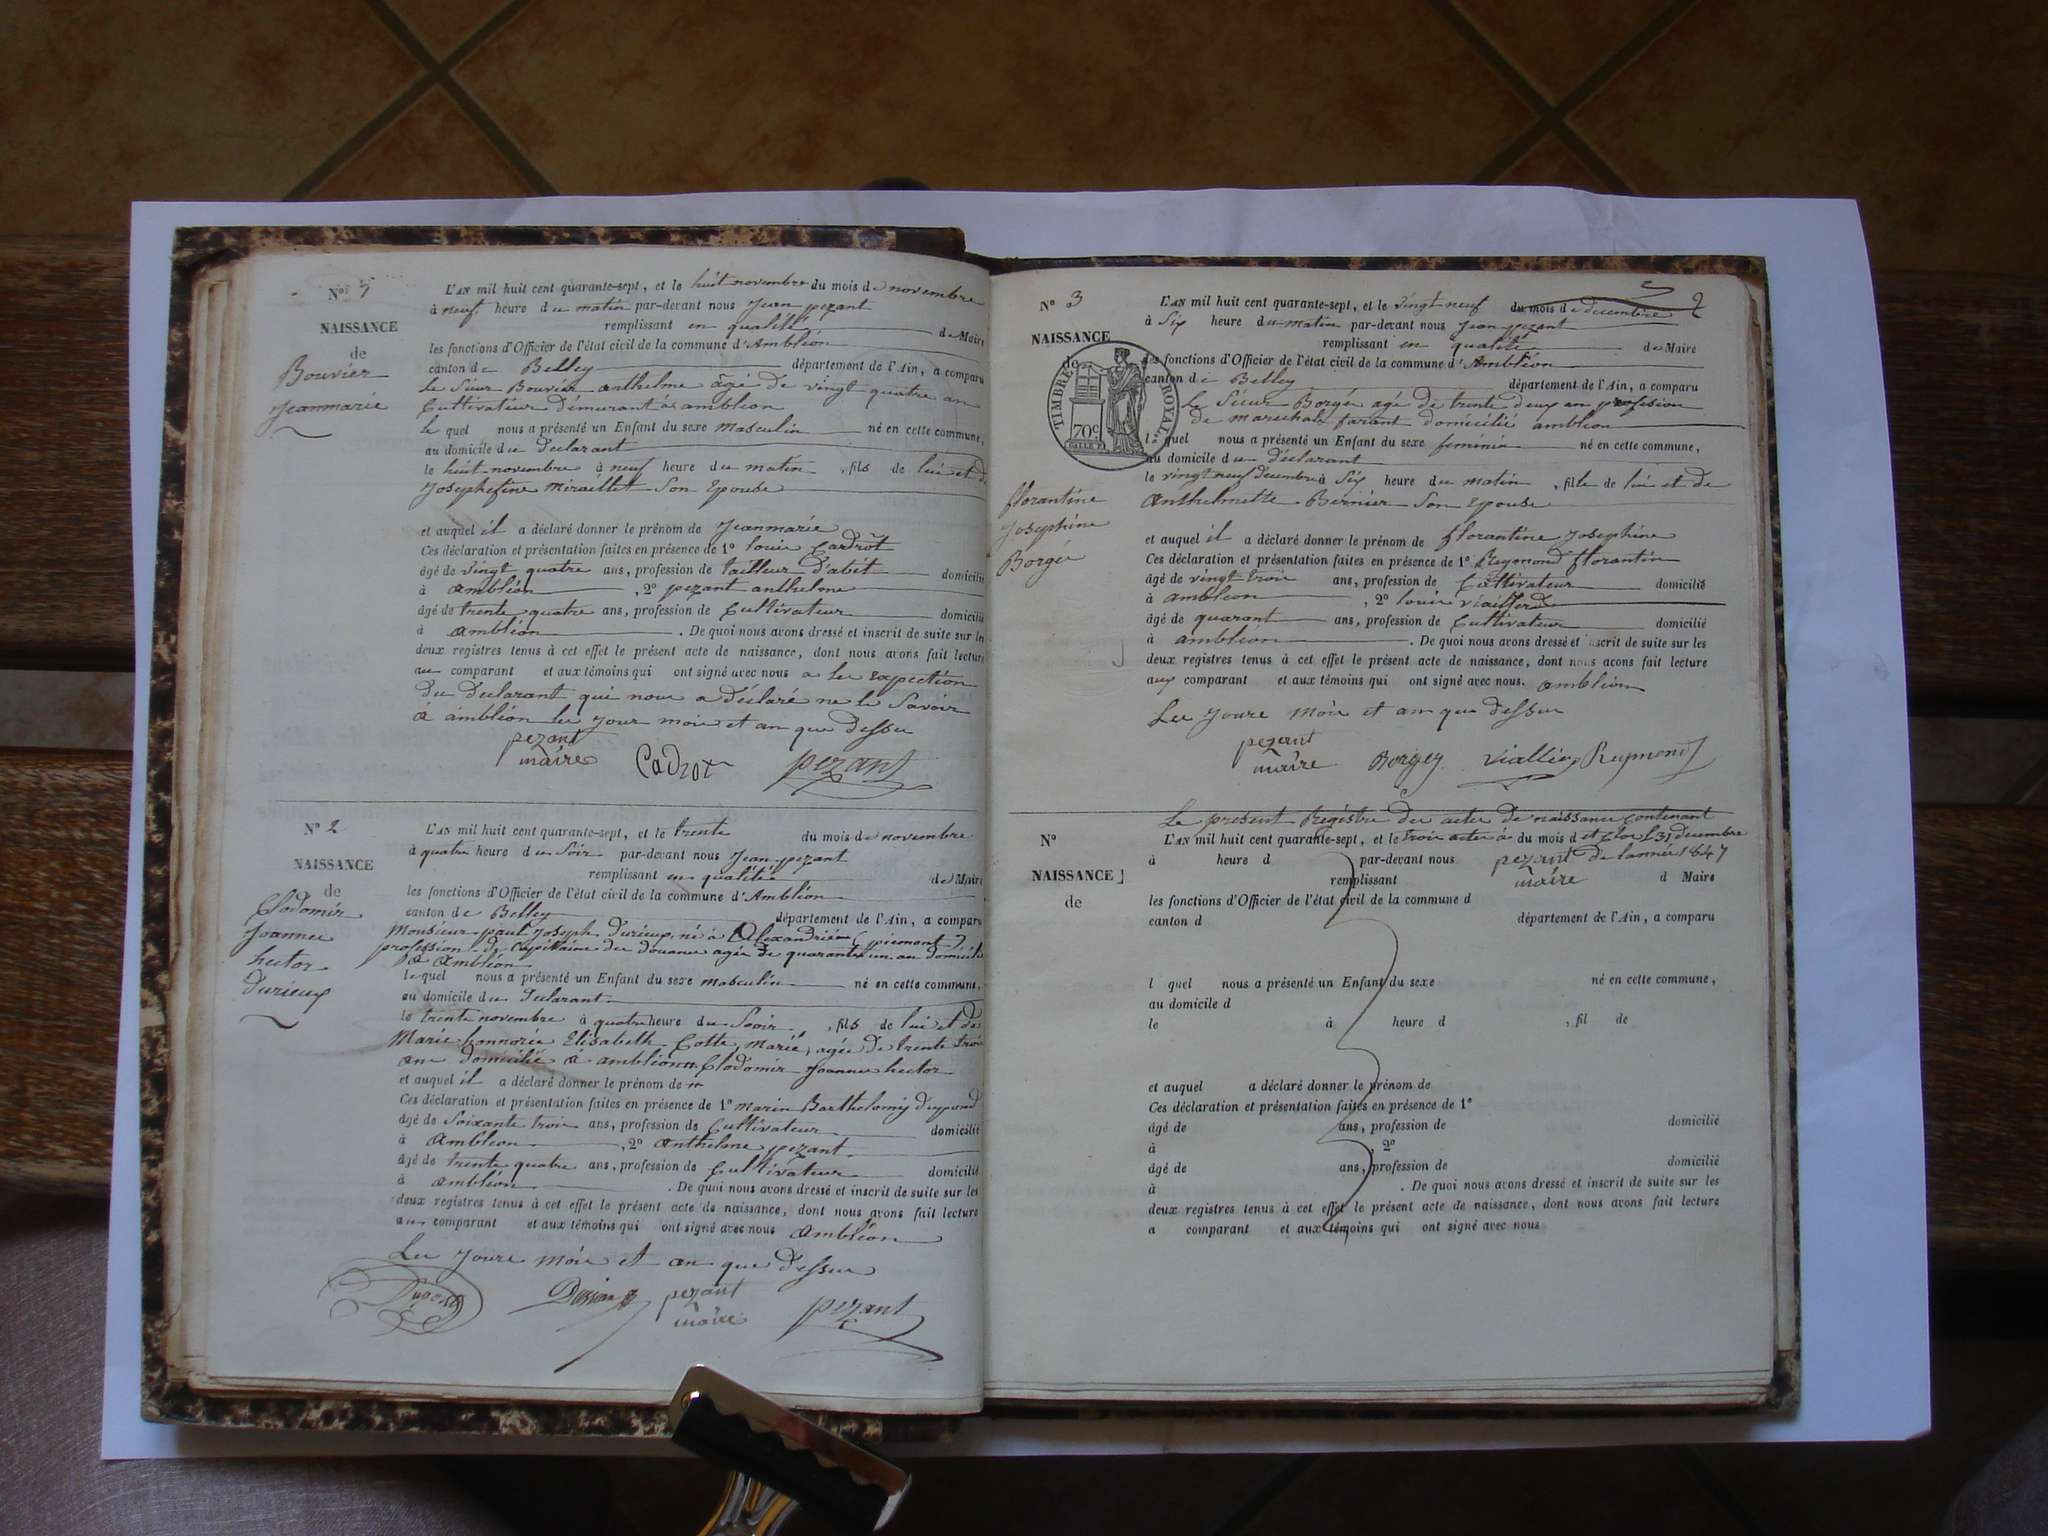 NAISSANCE
de
Bouvier
Jeanmarie
L'AN mil huit cent quarante-sept, et le huit novembre du mois de novembre
à neuf heure du matin par-devant nous Jean pezant
remplissant en qualité de Maire
les fonctions d'Officier de l'état civil de la commune d'Ambléon
canton de Belley département de l'Ain, a comparu
le Sieur Bouvier anthelme âgé de vingt quatre an
Cultivateur démurant à ambléon
le quel nous a présenté un Enfant du sexe masculin né en cette commune,
au domicile du Déclarant
le huit novembre à neuf heure du matin, fils de lui et de
Josephefine Miraillet Son Epouse
et auquel il a déclaré donner le prénom de Jeanmarie
Ces déclaration et présentation faites en présence de 1º louis Cardrot
âgé de vingt quatre ans, profession de tailleur d'abit domicilié
à ambléon, 2º pezant anthelme
âgé de trente quatre ans, profession de Cultivateur domicilié
à ambléon. De quoi nous avons dressé et inscrit de suite sur les
deux registres tenus à cet effet le présent acte de naissance, dont nous avons fait lecture
au comparant et aux témoins qui ont signé avec nous a les expection
du Declarant qui nous a déclaré ne le Savoir
à ambléon les jour mois et an que dessu
pezant
maire Cadrot pezant
Nº 2
NAISSANCE
de
Clodomir
Joannes
hector
Durieux
L'AN mil huit cent quarante-sept, et le trente du mois de novembre
à quatre heure du Soir par-devant nous Jean pezant
remplissant en qualité de Maire
les fonctions d'Officier de l'état civil de la commune d'Ambléon
canton de Belley département de l'Ain, a comparu
Monsieur paul Joseph Durieux, né à Alexandrie (piemont)
profession de Capitaine des douanes agée de quarante un an domicilié
à Ambléon
le quel nous a présenté un Enfant du sexe masculin né en cette commune,
au domicile du Declarant
le trente novembre à quatre heure du Soir, fils de lui et de
Marie honnorée Elisabeth Cotte, Marié, agée de trente trois
ans domicilié à ambléon Clodomir Joannes hector
et auquel il a déclaré donner le prénom de
Ces déclaration et présentation faites en présence de 1º marin Barthelomy
âgé de Soixante trois ans, profession de Cultivateur domicilié
à Ambléon, 2º anthelme pezant
âgé de trente quatre ans, profession de Cultivateur domicilié
à ambléon. De quoi nous avons dressé et inscrit de suite sur les
deux registres tenus à cet effet le présent acte de naissance, dont nous avons fait lecture
aux comparant et aux témoins qui ont signé avec nous ambléon
Les Jours mois et an que dessu
pezant
maire pezant
2
Nº 3
NAISSANCE
de
TIMBRE ROYAL
70c
florantine
Josephine
Borgey
L'AN mil huit cent quarante-sept, et le vingt neuf du mois de decembre
à Six heure du matin par-devant nous Jean pezant
remplissant en qualité de Maire
les fonctions d'Officier de l'état civil de la commune d'Ambléon
canton de Belley département de l'Ain, a comparu
le Sieur Borgey agé de trente deux an profession
de marechal farant domicilié ambléon
le quel nous a présenté un Enfant du sexe feminin né en cette commune,
au domicile du déclarant
le vingt neuf decembre à Six heure du matin, fille de lui et de
anthelmette Bernier Son Epouse
et auquel il a déclaré donner le prénom de florantine Josephine
Ces déclaration et présentation faites en présence de 1º Reymond florantin
âgé de vingt trois ans, profession de Cultivateur domicilié
à ambléon, 2º louis
âgé de quarant ans, profession de Cultivateur domicilié
à ambléon. De quoi nous avons dressé et inscrit de suite sur les
deux registres tenus à cet effet le présent acte de naissance, dont nous avons fait lecture
aux comparant et aux témoins qui ont signé avec nous. ambléon
Les Jours mois et an que dessu
pezant
maire Borgey Reymond
Le present Registre des actes de naissance contenant
Nº
NAISSANCE
de
L'AN mil huit cent quarante-sept, et le trois actes a du mois d et Clos L 31 decembre
à heure d par-devant nous pezant de l'année 1847
remplissant maire d Maire
les fonctions d'Officier de l'état civil de la commune d
canton d département de l'Ain, a comparu
l quel nous a présenté un Enfant du sexe né en cette commune,
au domicile d
le à heure d, fil de
et auquel a déclaré donner le prénom de
Ces déclaration et présentation faites en présence de 1º
âgé de ans, profession de domicilié
à, 2º
âgé de ans, profession de domicilié
à. De quoi nous avons dressé et inscrit de suite sur les
deux registres tenus à cet effet le présent acte de naissance, dont nous avons fait lecture
a comparant et aux témoins qui ont signé avec nous